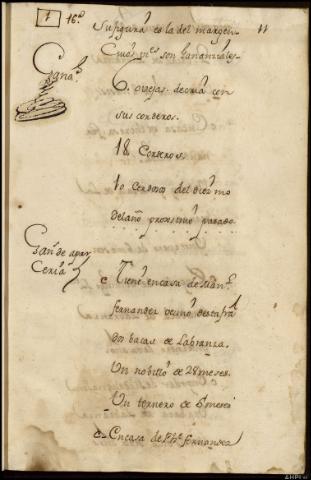 1 16.a
Su figura es la del margen. 11
Cuios pies son Gananziales.
Ganado
6. ovejas de cria con
sus corderos.
18. Corderos.
10 Corderos del diezmo
del año proximo pasado.
Gan.do de apar
ceria
c Tiene en casa de Man.l
fernandez vecino desta fra
dos bacas de Labranza.
Un nobillo de 28 meses.
Un ternero de 6 meses
c En casa de Ph.e fernandez